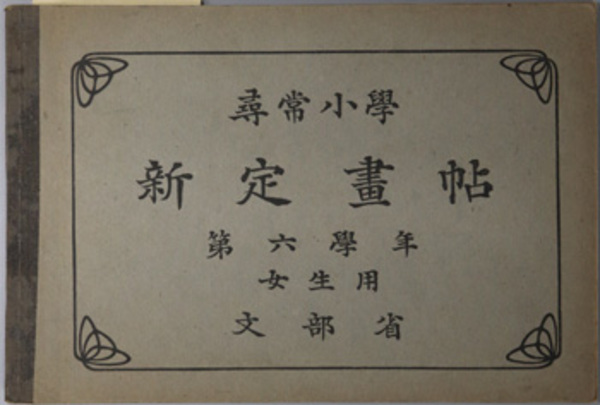 尋常小學
新定畫帖
第六學年
女生用
文部省